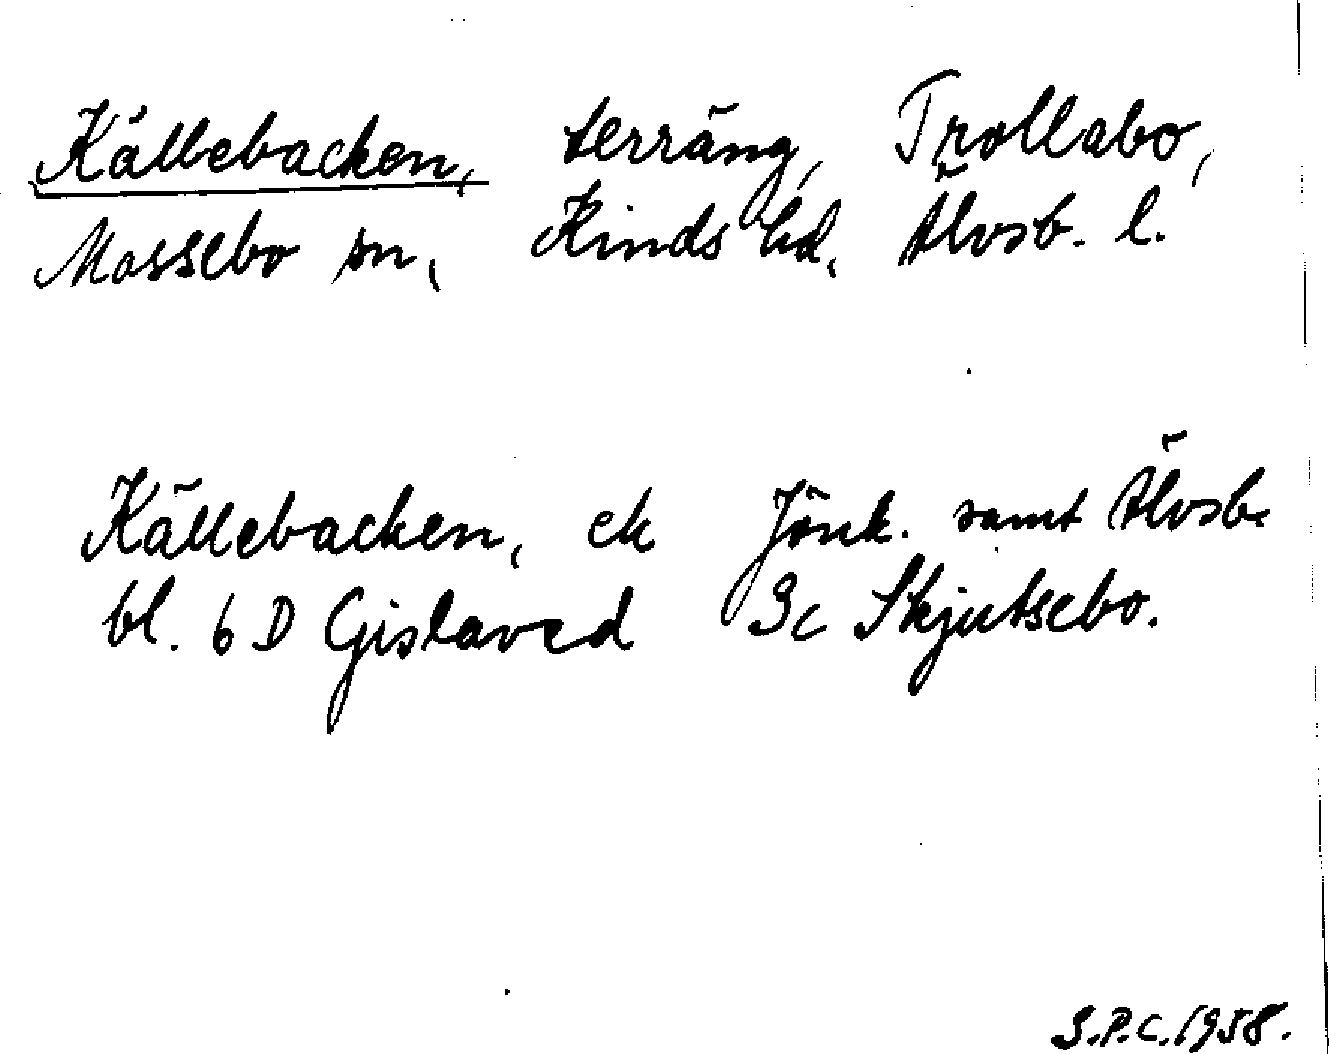 Källebacken, terräng, Trollabo,
Mossebo sn, Kinds hd, Älvsb. l.
Källebacken, ek Jönk. samt Älvsb.
bl. 6 D Gislaved 3c Skjutsebo.
S.P.C. 1958.